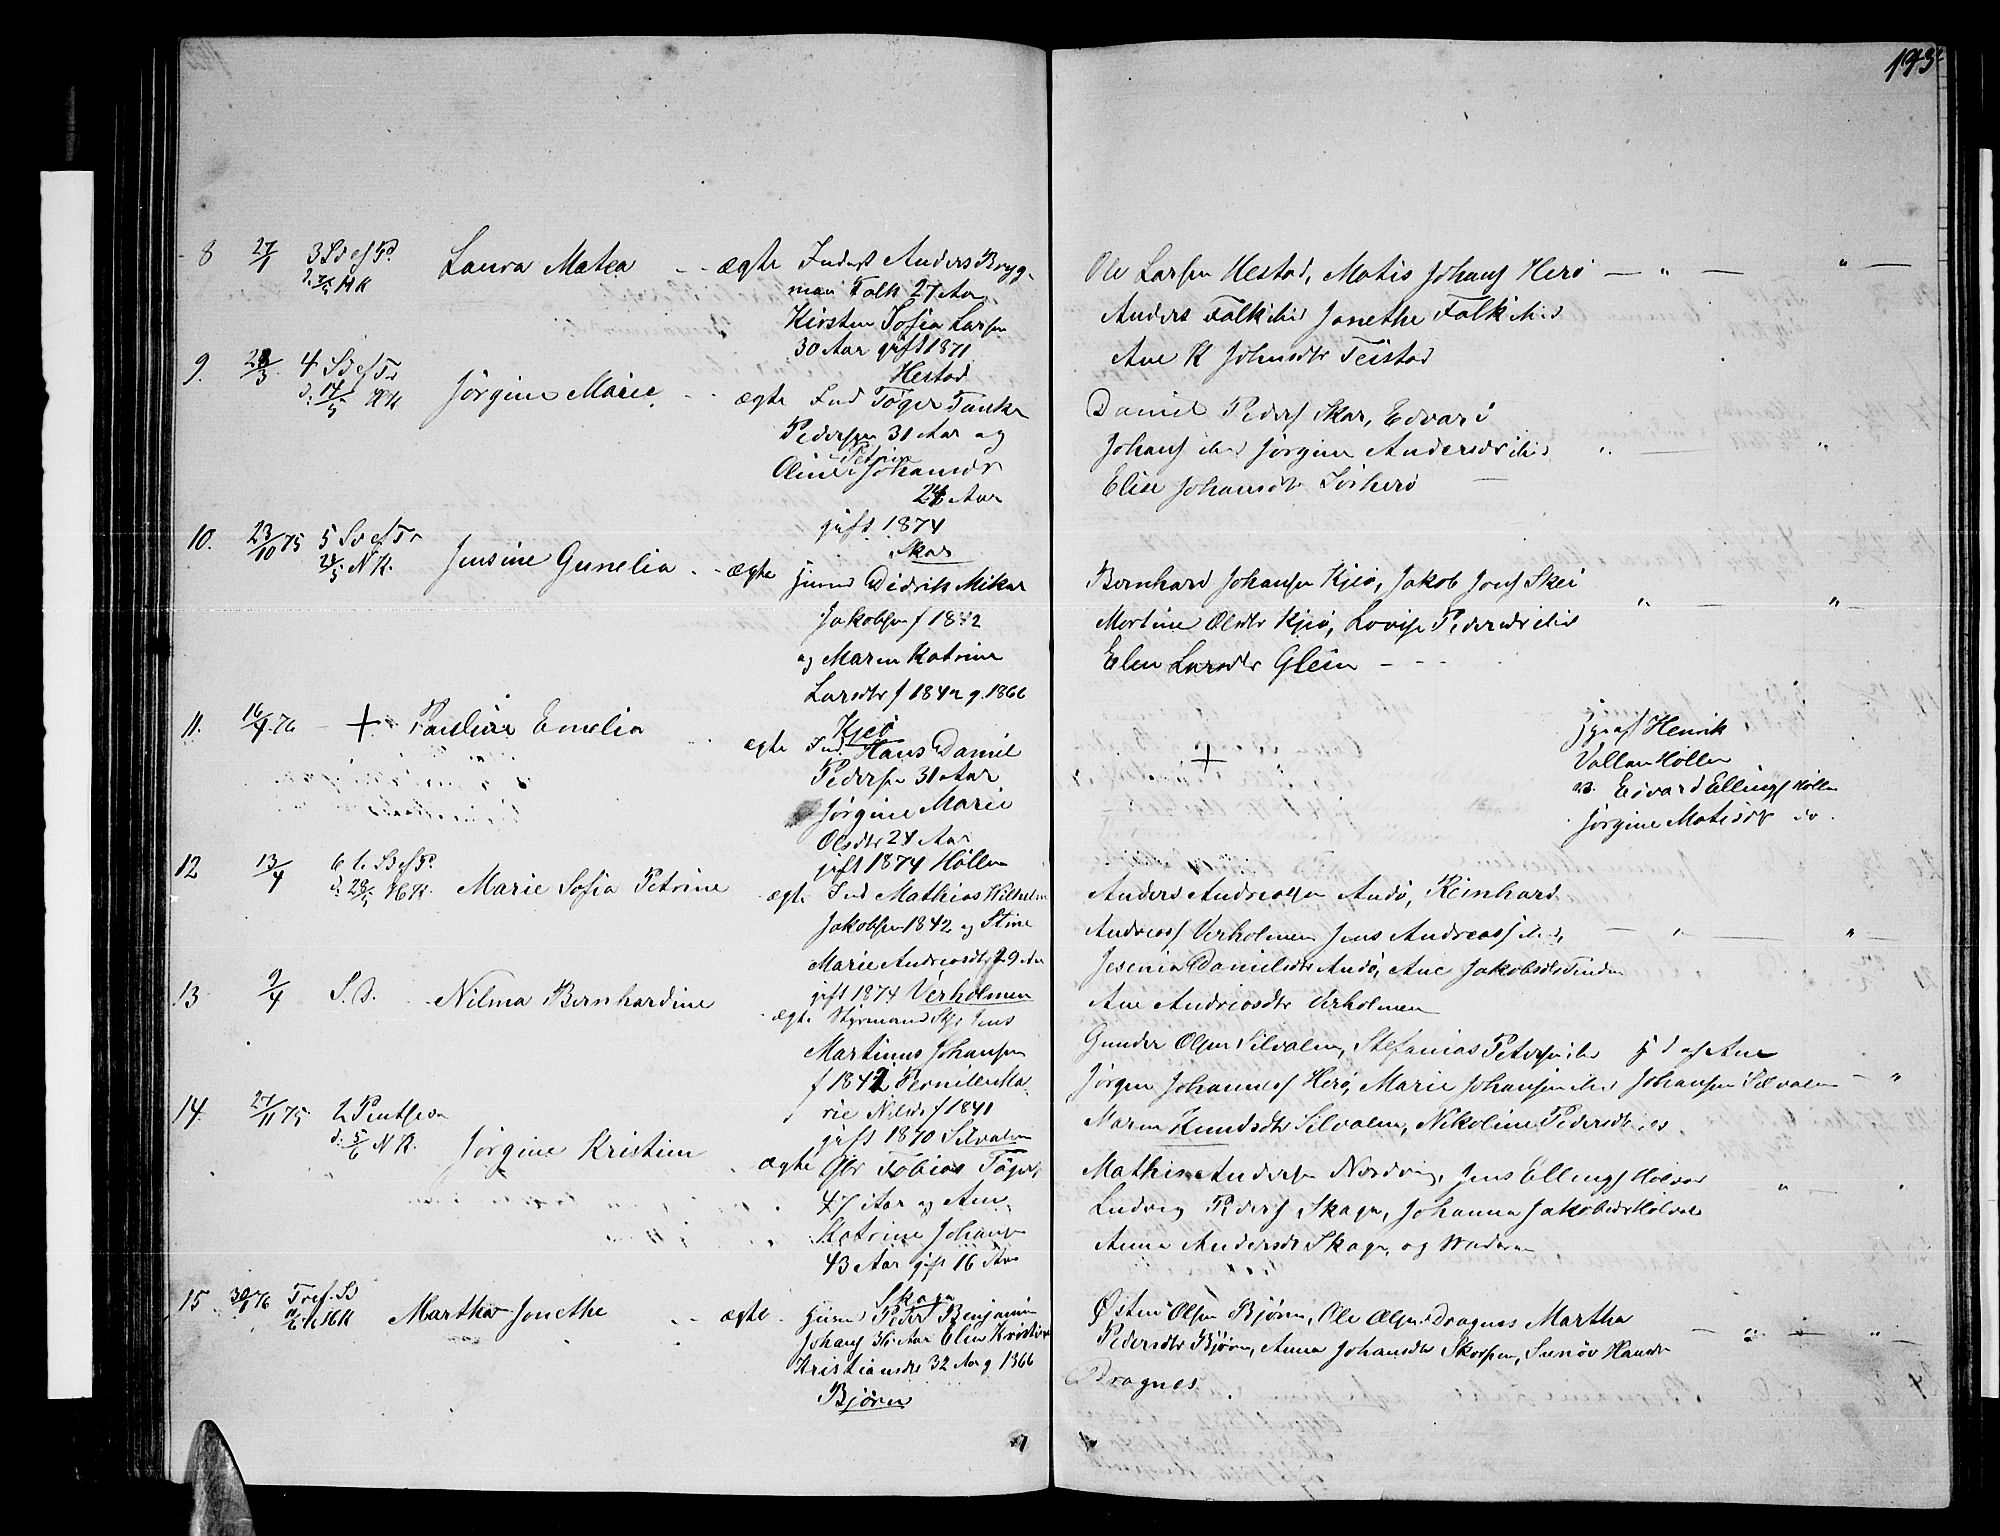 193
8 27/1 3 S ef P. Laura Matea - - ægte Inderst Anders Bryg-
d. 7/5 HK
man Falk 27 Aar
Kirsten Sofia Larsen
30 Aar gift 1871
Hestad
Ole Larsen Hestad, Matis Johans Herö — " — " —
Anders Falk ibid Jonethe Falk ibid
Ane K Johnsdtr Teistad
9. 28/3 4 S ef Tr Jörgine Marie - - ægte Ind Töger Tanke
d. 14/5 HK
Pedersen 31 Aar og
Oline Petrine Johansdr
24 Aar
gift 1874
Skar
Daniel Peders Skar, Edvard
Johans ibid Jörgine Andersdr ibid " — "
Elise Johansdtr Sörherö —
10. 23/10 75 5 S ef Tr Jensine Gunelia - - ægte Huusmd Didrik Mikal
21/5 N K.
Jakobsen f 1842
og Maren Katrine
Larsdtr f 1842 g. 1866
Kjeö
Bernhard Johansen Kjeö, Jakob Jons Skei
Mortine Olsdtr Kjeö, Lovise Pedersdr ibid " — " —
Elen Larsdtr Glein - - -
11. 16/4 76 — + Pauline Emelia - - ægte Ind. Hans Daniel
Pedersen 31 Aar
Jörgine Marie
Olsdtr 24 Aar
gift 1874 Höllen
+
Henrik
Vallan Höllen
Edvard Ellings Höllen
Jörgine Matisdr do.
12 13/4 6 S ef P. Marie Sofia Petrine - ægte Ind Mathias Wilhelm
d. 28/5 HK.
Jakobsen 1842 og Stine
Marie Andreasdtr 29 Aar
gift 1874 Verholmen
Anders Andreassen Andö, Reinhard
Andreass Verholmen Jens Andreass ibid, — " — " —
Jesenia Danielsdtr Andö, Ane Jakobsdtr Tenden
Ane Andreasdtr Verholmen
13 9/4 S. D. - Nilma Bernhardine - ægte Styrmand Skp Jens
Martinus Johansen
f 1842 Pernille Ma-
rie Nilsd f 1841
gift 1870 Silvalen
Gunder Olsen Silvalen, Stefanias Petersen ibd
Jörgen Johannes Herö, Marie Johansen ibid Johansen Silvalen — "
Maren Knudsdtr Silvalen, Nikoline Pedersdtr
14. 27/11 75 2 Pentsedn Jörgine Kristine - ægte Gbr Tobias Tögers
d. 5/6 N K.
47 Aar og Ane
Katrine Johans
43 Aar gift 16 Aar
Skaga
Mathias Andersen Nordvig, Jens Ellings Holvar " —
Ludvig Peders Skagn, Johanna Jakobsdtr Holvar
Anna Andersdtr Skagn, og Moderen
15 30/1 76 Tref. S Martha Jonethe - - ægte Huusmd Peder Benjamin
11/6 HK
Johans 36 Aar Elen Kristine
Kristiansdr 32 Aar g 1866
Björn
Östen Olsen Björn, Ole Olsen Dragnes Martha
Pedersdtr Björn, Anna Johansdtr Skorpen, Sunöv Hansdr — " — " —
Dragnes